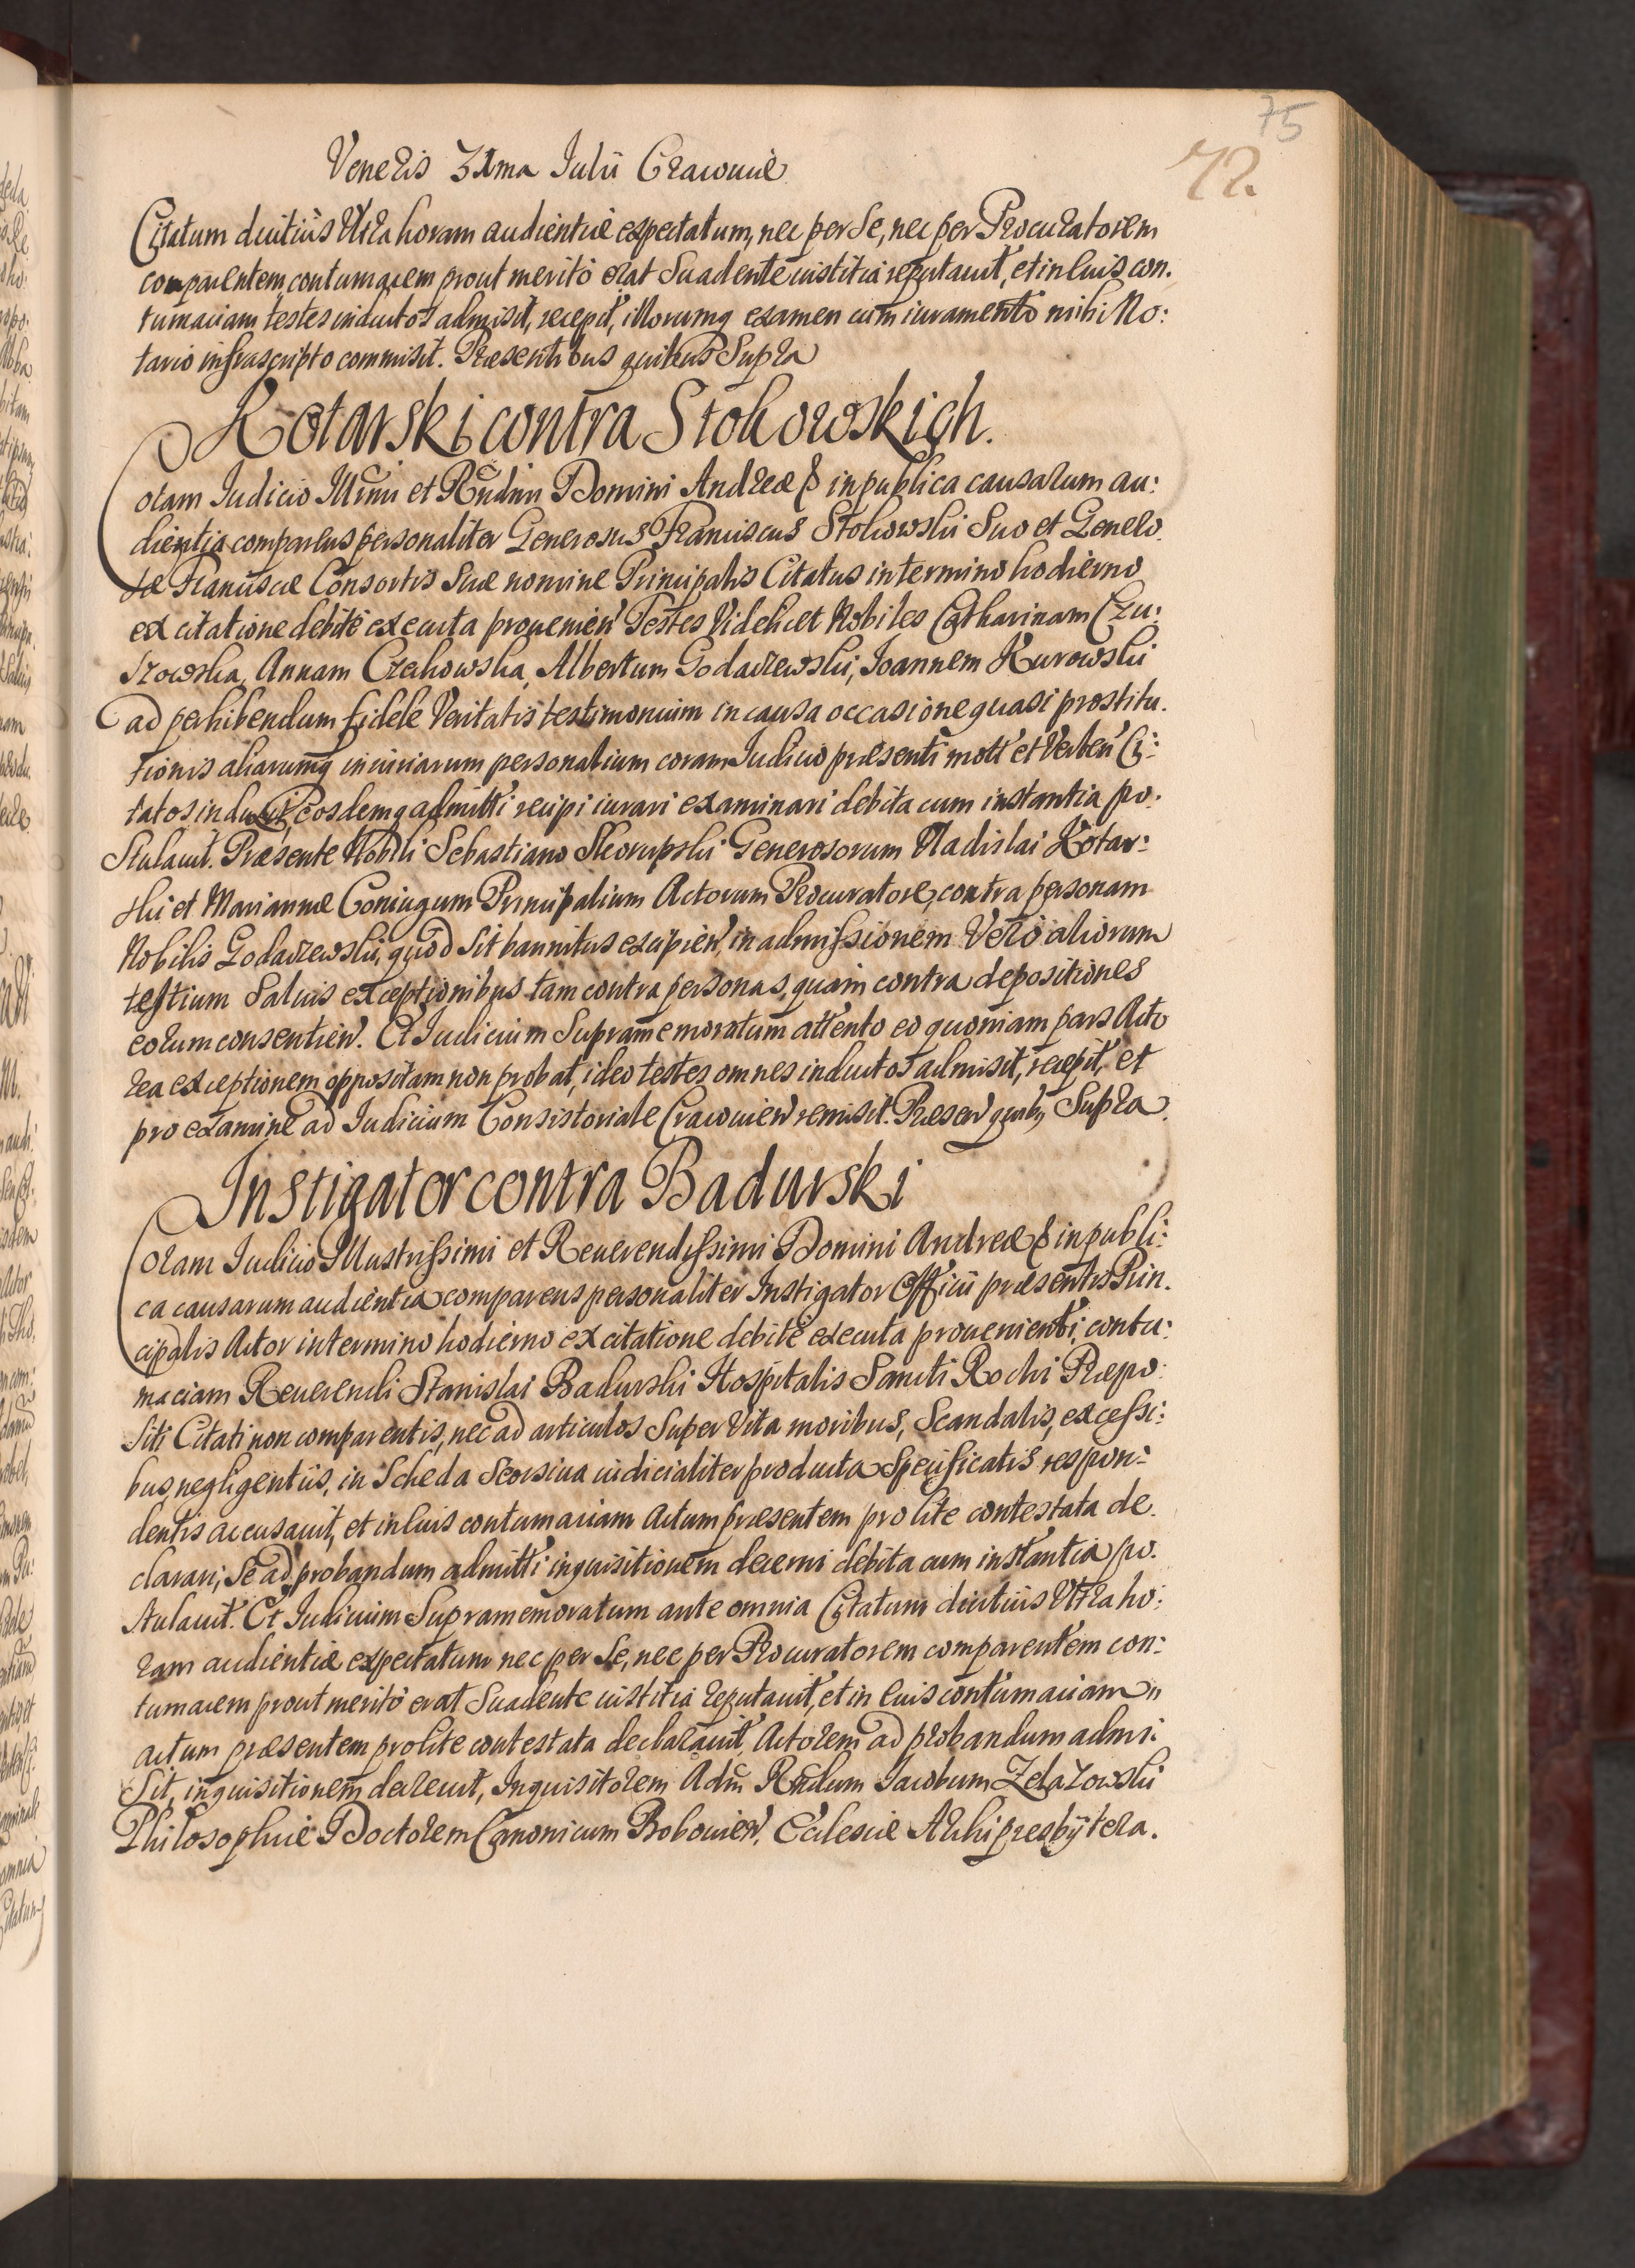 75
72.
Veneris 31ma Iulii Cracoviæ
Citatum diutiùs Ultra horam audientiæ expectatum, nec per Se, nec per Procuratorem
comparentem, contumacem prout meritò erat Suadente iustitia reputauit, et in huius con.
tumaciam testes inductos admisit, recepit, illorumq examen cum iuramento mihi No:
tario infrascripto commisit. Præsentibus quibus Supra
Kotarski contra Stokowskich.
Coram Iudicio Illmi et Rndmi Domini Andreæ & in publica causarum au:
dientia comparens personaliter Generosus Franciscus Stokowski Suo et Genero
sæ Franciscæ Consortis Suæ nomine Principalis Citatus in termino hodierno
ex citatione debitè executa prouenien Testes Videlicet Nobiles Catharinam Czu:
szowska, Annam Czechowska, Albertum Godaczewski, Ioannem Kurowski
ad perhibendum fidele Veritatis testimonium in causa occasione quasi prostitu.
tionis aliarumq iniuriarum personalium coram Iudicio præsenti mott et Verten Ci:
tatos induxit eosdemq admitti recipi iurari examinari debita cum instantia po:
stulauit. Præsente Nobili Sebastiano Skorupski Generosorum Vladislai Kotar:
ski et Mariannæ Coniugum Principalium Actorum Procuratore, contra personam
Nobilis Godaczewski, quòd Sit bannitus excipien, in admissionem Verò aliorum
testium Saluis exceptionibus tam contra personas, quàm contra depositiones
eorum consentien. Et Iudicium Supramemoratum attento eo quoniam pars Acto
rea exceptionem oppositam non probat, ideo testes omnes inductos admisit, recepit, et
pro examine ad Iudicium Consistoriale Cracouien remisit. Præsen quibus Supra
Instigator contra Badurski
Coram Iudicio Illustrissimi et Reuerendissimi Domini Andreæ & in publi:
ca causarum audientia comparens personaliter Instigator Officii præsentis Prin.
cipalis Actor in termino hodierno ex citatione debitè executa prouenienti, contu:
maciam Reuerendi Stanislai Badurski Hospitalis Sancti Rochi Præpo:
siti Citati non comparentis, nec ad articulos Super Vita moribus, Scandalis, excessi:
bus negligentiis, in Scheda Seorsiua iudicialiter producta Specificatis respon:
dentis accusauit, et in huius contumaciam Actum præsentem pro lite contestata de.
clarari, Se ad probandum admitti inquisitionem decerni debita cum instantia po.
stulauit. Et Iudicium Supramemoratum ante omnia Citatum diutiùs Ultra ho:
ram audientiæ expectatum nec per Se, nec per Procuratorem comparentem con:
tumacem prout meritò erat Suadente iustitia reputauit, et in huius contumaciam
actum præsentem pro lite contestata declarauit, Actorem ad probandum admi:
sit, inquisitionem decreuit, Inquisitorem Adm Rndum Iacobum Zelazowski
Philosophiæ Doctorem Canonicum Bobouien, Ecclesiæ Archipresbÿtera.